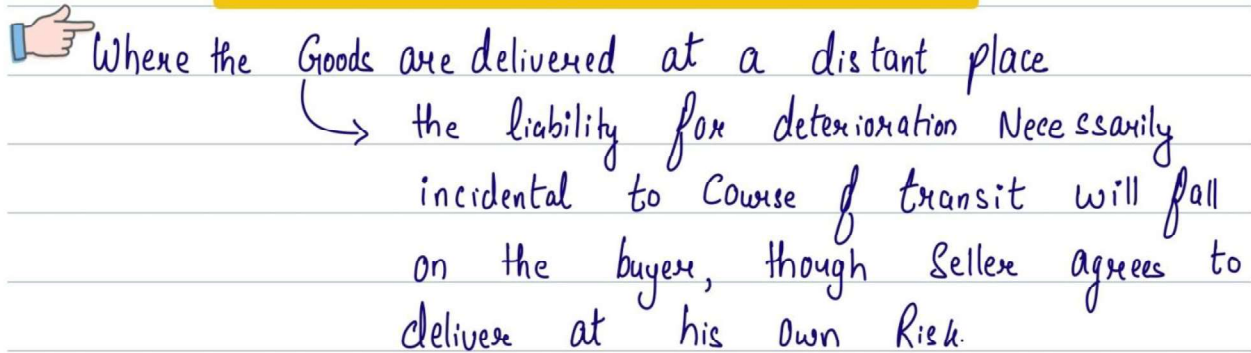 Where the Goods are delivered at a distant place
the liability for deterioration Necessarily
incidental to Course of transit will fall
on the buyer, though Seller agrees to
deliver at his own Risk.